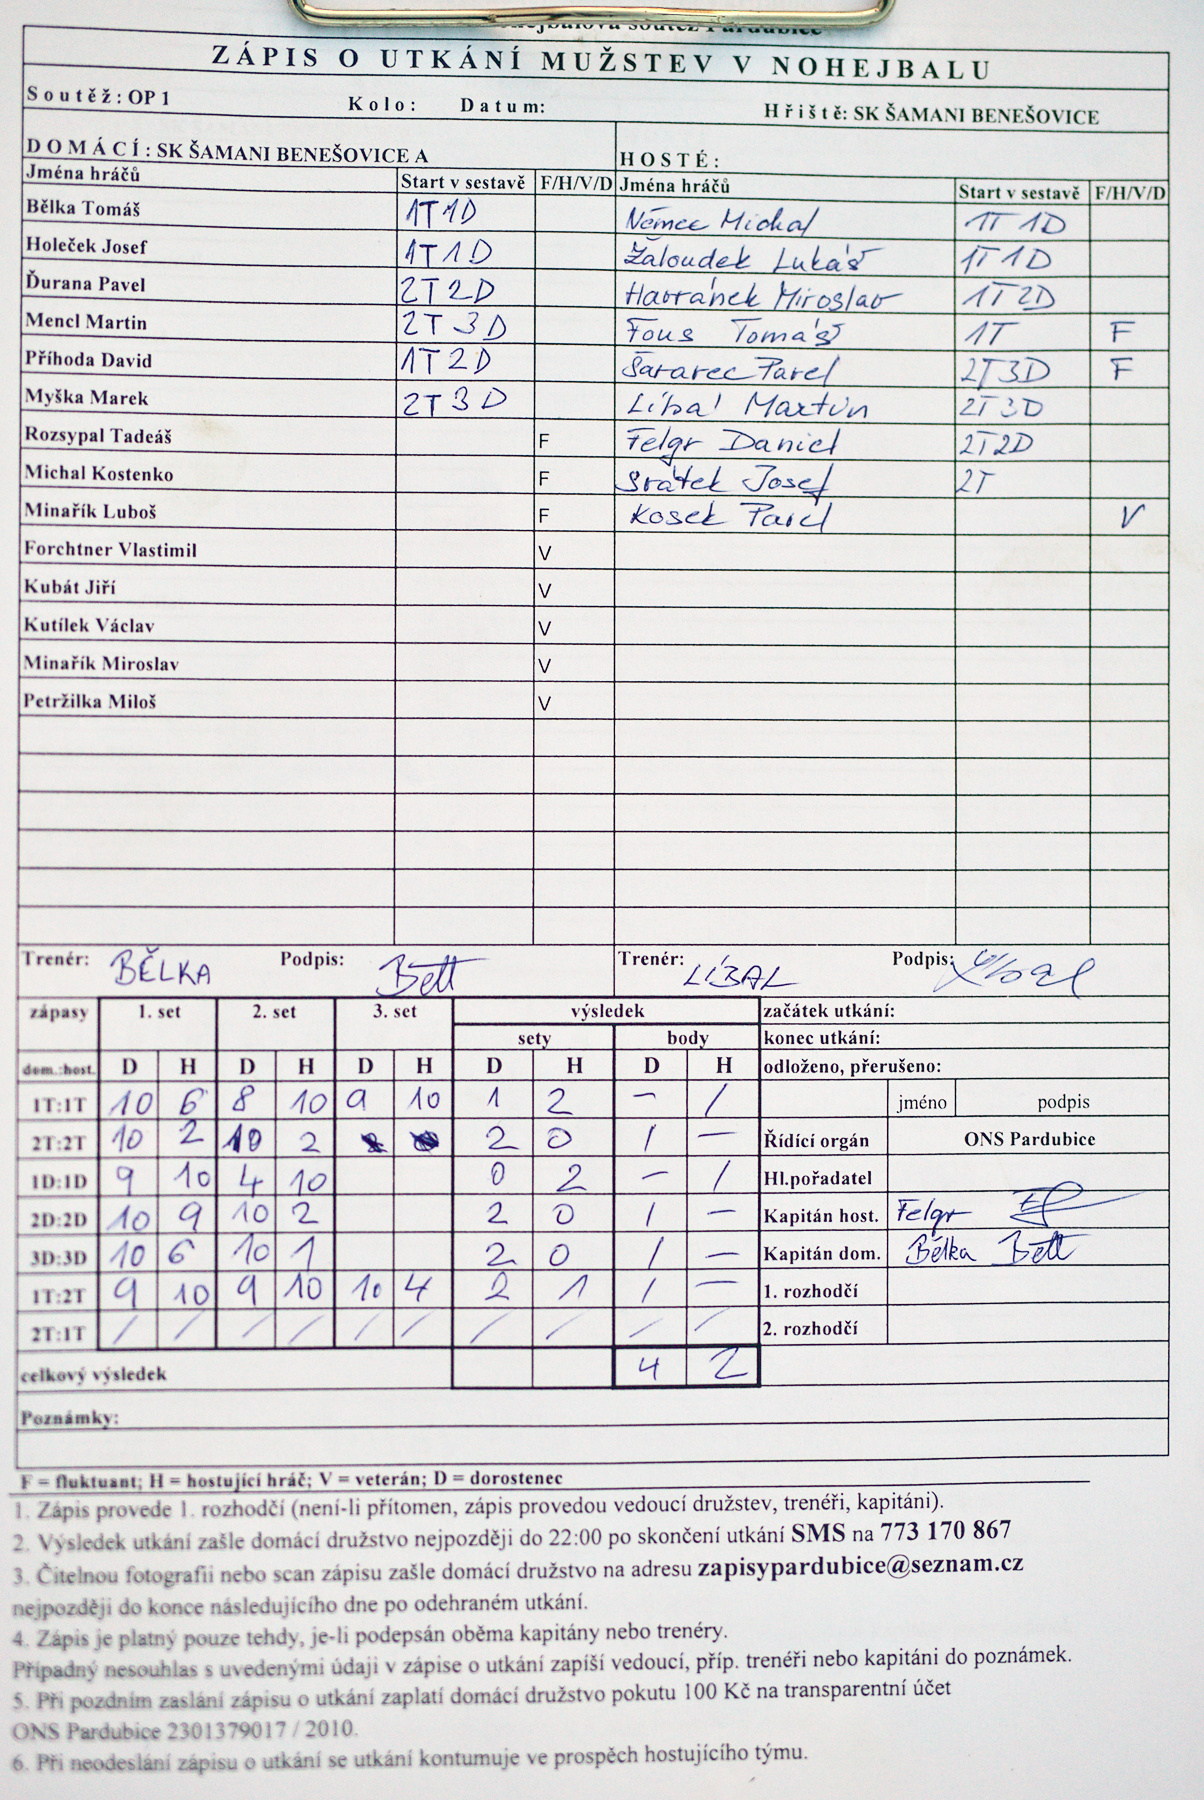 ZÁPIS O UTKÁNÍ MUŽSTEV V NOHEJBALU
Soutěž: OP 1 Kolo: Datum: Hřiště: SK ŠAMANI BENEŠOVICE
DOMÁCÍ: SK ŠAMANI BENEŠOVICE A HOSTÉ:
Jména hráčů Start v sestavě F/H/V/D Jména hráčů Start v sestavě F/H/V/D
Bělka Tomáš 1T1D Němec Michal 1T 1D
Holeček Josef 1T1D Žaloudek Lukáš 1T1D
Ďurana Pavel 2T2D Havránek Miroslav 1T2D
Mencl Martin 2T3D Fous Tomáš 1T F
Příhoda David 1T2D Šararec Pavel 2T3D F
Myška Marek 2T3D Líbal Martin 2T3D
Rozsypal Tadeáš F Felgr Daniel 2T2D
Michal Kostenko F Svátek Josef 2T
Minařík Luboš F Kosek Pavel V
Forchtner Vlastimil V
Kubát Jiří V
Kutílek Václav V
Minařík Miroslav V
Petržilka Miloš V
Trenér: BĚLKA Podpis: Trenér: LÍBAL Podpis:
zápasy 1. set 2. set 3. set výsledek začátek utkání:
sety body konec utkání:
dom.:host. D H D H D H D H D H odloženo, přerušeno:
1T:1T 10 6 8 10 9 10 1 2 – / jméno podpis
2T:2T 10 2 10 2 2 0 1 – Řídící orgán ONS Pardubice
1D:1D 9 10 4 10 0 2 – / Hl.pořadatel
2D:2D 10 9 10 2 2 0 1 – Kapitán host. Felgr
3D:3D 10 6 10 1 2 0 1 – Kapitán dom. Bělka
1T:2T 9 10 9 10 10 4 2 1 1 – 1. rozhodčí
2T:1T / / / / / / / / / / 2. rozhodčí
celkový výsledek 4 2
Poznámky:
F = fluktuant; H = hostující hráč; V = veterán; D = dorostenec
1. Zápis provede 1. rozhodčí (není-li přítomen, zápis provedou vedoucí družstev, trenéři, kapitáni).
2. Výsledek utkání zašle domácí družstvo nejpozději do 22:00 po skončení utkání SMS na 773 170 867
3. Čitelnou fotografii nebo scan zápisu zašle domácí družstvo na adresu zapisypardubice@seznam.cz
nejpozději do konce následujícího dne po odehraném utkání.
4. Zápis je platný pouze tehdy, je-li podepsán oběma kapitány nebo trenéry.
Případný nesouhlas s uvedenými údaji v zápise o utkání zapíší vedoucí, příp. trenéři nebo kapitáni do poznámek.
5. Při pozdním zaslání zápisu o utkání zaplatí domácí družstvo pokutu 100 Kč na transparentní účet
ONS Pardubice 2301379017 / 2010.
6. Při neodeslání zápisu o utkání se utkání kontumuje ve prospěch hostujícího týmu.